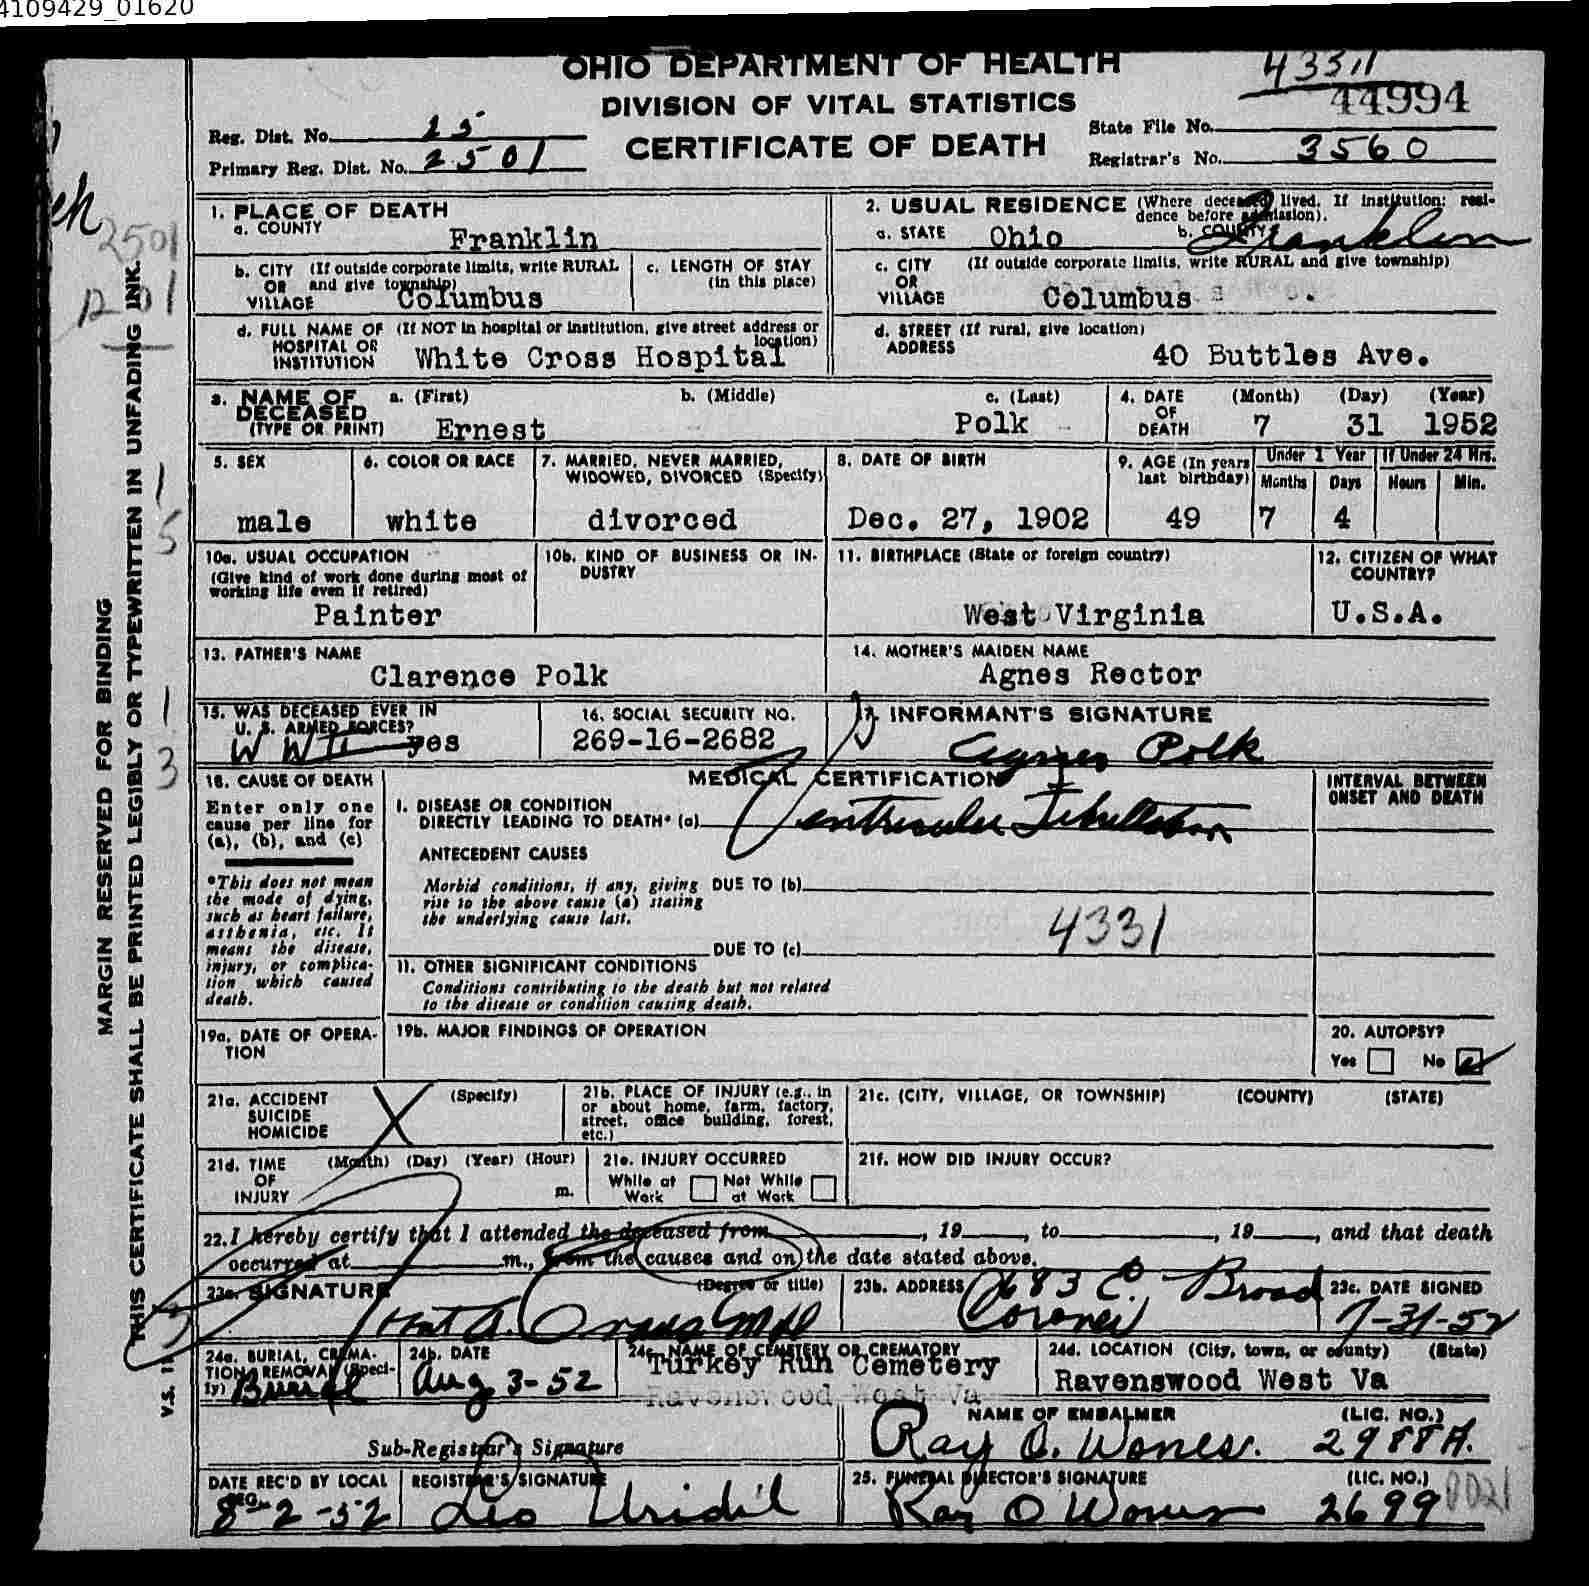 4109429_01620
OHIO DEPARTMENT OF HEALTH
DIVISION OF VITAL STATISTICS
CERTIFICATE OF DEATH
4331
44994
Reg. Dist. No. 25
Primary Reg. Dist. No. 2501
State File No.
Registrar's No. 3560
2501
1201
MARGIN RESERVED FOR BINDING
THIS CERTIFICATE SHALL BE PRINTED LEGIBLY OR TYPEWRITTEN IN UNFADING INK.
1
5
1
3
V.S.
1. PLACE OF DEATH
a. COUNTY
Franklin
2. USUAL RESIDENCE (Where deceased lived. If institution: resi-
dence before admission).
a. STATE Ohio b. COUNTY Franklin
b. CITY (If outside corporate limits, write RURAL
OR and give township)
VILLAGE Columbus
c. LENGTH OF STAY
(in this place)
c. CITY (If outside corporate limits, write RURAL and give township)
OR
VILLAGE Columbus
d. FULL NAME OF (If NOT in hospital or institution, give street address or
location)
HOSPITAL OR
INSTITUTION White Cross Hospital
d. STREET (If rural, give location)
ADDRESS 40 Buttles Ave.
3. NAME OF DECEASED
(TYPE OR PRINT)
a. (First) b. (Middle) c. (Last)
Ernest Polk
4. DATE OF DEATH
(Month) (Day) (Year)
7 31 1952
5. SEX
male
6. COLOR OR RACE
white
7. MARRIED, NEVER MARRIED,
WIDOWED, DIVORCED (Specify)
divorced
8. DATE OF BIRTH
Dec. 27, 1902
9. AGE (In years
last birthday)
49
Under 1 Year
Months Days
7 4
If Under 24 Hrs.
Hours Min.
10a. USUAL OCCUPATION
(Give kind of work done during most of
working life even if retired)
Painter
10b. KIND OF BUSINESS OR IN-
DUSTRY
11. BIRTHPLACE (State or foreign country)
West Virginia
12. CITIZEN OF WHAT
COUNTRY?
U.S.A.
13. FATHER'S NAME
Clarence Polk
14. MOTHER'S MAIDEN NAME
Agnes Rector
15. WAS DECEASED EVER IN
U. S. ARMED FORCES?
W W II yes
16. SOCIAL SECURITY NO.
269-16-2682
17. INFORMANT'S SIGNATURE
Agnes Polk
18. CAUSE OF DEATH
Enter only one
cause per line for
(a), (b), and (c)
*This does not mean
the mode of dying,
such as heart failure,
asthenia, etc. It
means the disease,
injury, or complica-
tion which caused
death.
MEDICAL CERTIFICATION
INTERVAL BETWEEN
ONSET AND DEATH
I. DISEASE OR CONDITION
DIRECTLY LEADING TO DEATH* (a) Ventricular Fibrillation
ANTECEDENT CAUSES
Morbid conditions, if any, giving DUE TO (b)
rise to the above cause (a) stating
the underlying cause last.
4331
DUE TO (c)
11. OTHER SIGNIFICANT CONDITIONS
Conditions contributing to the death but not related
to the disease or condition causing death.
19a. DATE OF OPERA-
TION
19b. MAJOR FINDINGS OF OPERATION
20. AUTOPSY?
Yes No
21a. ACCIDENT (Specify)
SUICIDE
HOMICIDE
21b. PLACE OF INJURY (e.g., in
or about home, farm, factory,
street, office building, forest,
etc.)
21c. (CITY, VILLAGE, OR TOWNSHIP) (COUNTY) (STATE)
21d. TIME (Month) (Day) (Year) (Hour)
OF
INJURY m.
21e. INJURY OCCURRED
While at Work Not While at Work
21f. HOW DID INJURY OCCUR?
22. I hereby certify that I attended the deceased from , 19 , to , 19 , and that death
occurred at m., from the causes and on the date stated above.
23a. SIGNATURE (Degree or title)
MD
23b. ADDRESS 683 E. Broad
Coroner
23c. DATE SIGNED
7-31-52
24a. BURIAL, CREMA-
TION, REMOVAL (Speci-
fy) Burial
24b. DATE
Aug 3-52
24c. NAME OF CEMETERY OR CREMATORY
Turkey Run Cemetery
Ravenswood West Va
24d. LOCATION (City, town, or county) (State)
Ravenswood West Va
Sub-Registrar's Signature
NAME OF EMBALMER (LIC. NO.)
Ray O. Wones. 2988A.
DATE REC'D BY LOCAL
REG.
8-2-52
REGISTRAR'S SIGNATURE
Leo Uridil
25. FUNERAL DIRECTOR'S SIGNATURE (LIC. NO.)
Ray O Wones 2699